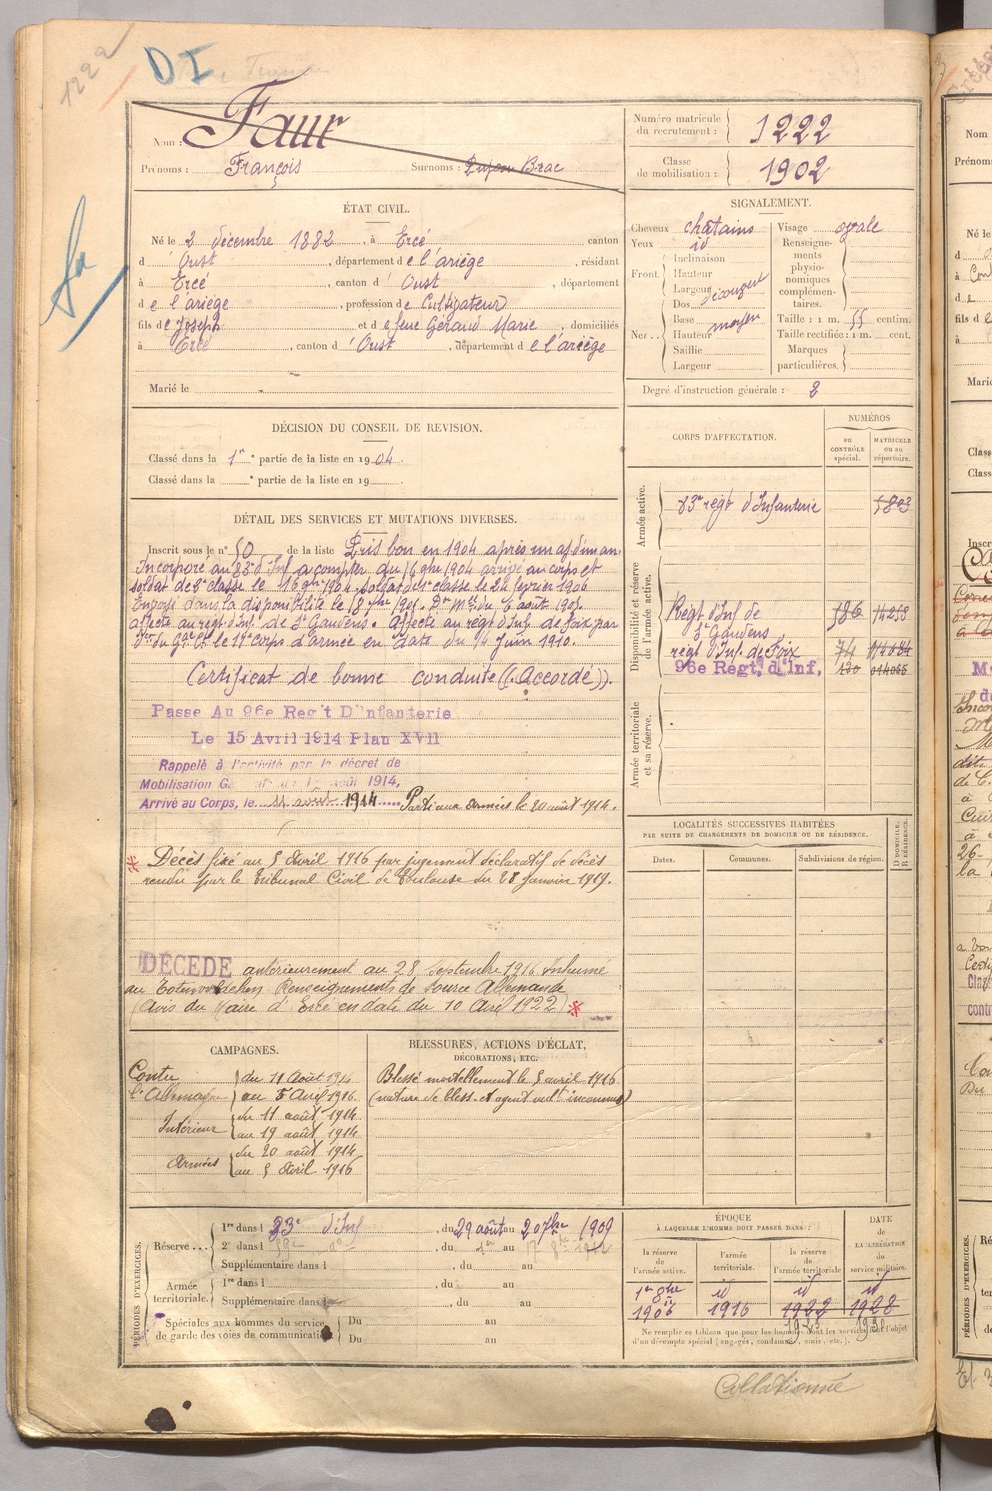 1222
DI
Nom : Faur
Prénoms : François Surnoms : Dupou Brac
Numéro matricule du recrutement : 1222
Classe de mobilisation : 1902
ÉTAT CIVIL.
Né le 2 décembre 1882, à Ercé, canton
d'Oust, département de l'ariège, résidant
à Ercé, canton d'Oust, département
de l'ariège, profession de Cultivateur
fils de Joseph et de feue Géraud Marie, domiciliés
à Ercé, canton d'Oust, département de l'ariège
Marié le
SIGNALEMENT.
Cheveux chatains Visage ovale
Yeux id Renseignements physionomiques complémentaires.
Front. Inclinaison
Hauteur
Largeur découvert
Nez. Dos
Base moyen
Hauteur
Saillie
Largeur
Taille : 1 m. 55 centim.
Taille rectifiée : 1 m. cent.
Marques particulières.
Degré d'instruction générale : 2
DÉCISION DU CONSEIL DE REVISION.
Classé dans la 1re partie de la liste en 1904.
Classé dans la e partie de la liste en 19
DÉTAIL DES SERVICES ET MUTATIONS DIVERSES.
Inscrit sous le n° 50 de la liste Pris bon en 1904 après un aj. d'un an
Incorporé au 83e d'Inf a compter du 16 9bre 1904 arrivé au corps et
soldat de 2e classe le 16 9bre 1904 soldat de 1e classe le 24 fevrier 1906
Envoyé dans la disponibilité le 18 du 6 août 190
affecté au regt d'Inf. de St Gaudens. Affecté au régt d'Inf. de foix par
le 17e corps d'armée en date du 14 Juin 1910.
Certificat de bonne conduite ((Accordé)).
Passe Au 96e Reg't D'Infanterie
Le 15 Avril 1914 Plan XVII
Rappelé à l'activité par le décret de
Mobilisation Générale du 1er août 1914,
Arrivé au Corps, le 11 août 1914 Parti aux Armées le 20 août 1914.
* Décès fixé au 5 Avril 1916 par jugement déclaratif de décès
rendu par le Tribunal Civil de Toulouse du 28 Janvier 1919.
DÉCÉDÉ antérieurement au 28 Septembre 1916 Inhumé
au Renseignements de Source Allemande
(Avis du Maire d'Ercé en date du 10 Avril 1922) *
CORPS D'AFFECTATION.
NUMÉROS
au CONTRÔLE spécial.
MATRICULE ou au répertoire.
Armée active.
83e régt d'Infanterie 5803
Disponibilité et réserve de l'armée active.
Régt d'Inf de St Gaudens 586 14258
régt d'Inf. de Foix 74 14084
96e Régt, d'Inf, 130 014055
Armée territoriale et sa réserve.
LOCALITÉS SUCCESSIVES HABITÉES
PAR SUITE DE CHANGEMENTS DE DOMICILE OU DE RÉSIDENCE.
Dates. Communes. Subdivisions de région. D DOMICILE. R RÉSIDENCE.
CAMPAGNES.
Contre l'Allemagne du 11 Août 1914
au 5 Avril 1916.
Intérieur du 11 août 1914
au 19 août 1914
Armées du 20 août 1914
au 5 Avril 1916
BLESSURES, ACTIONS D'ÉCLAT,
DÉCORATIONS, ETC.
Blessé mortellement le 5 avril 1916
(nature de bless. et agent vulnt inconnus)
PÉRIODES D'EXERCICES.
Réserve
1re dans l 83e d'Inf, du 29 août au 20 7bre 1909
2e dans l, du au
Supplémentaire dans l, du au
Armée territoriale.
1re dans l, du au
Supplémentaire dans l, du au
Spéciales aux hommes du service de garde des voies de communication
Du au
Du au
ÉPOQUE
À LAQUELLE L'HOMME DOIT PASSER DANS :
la réserve de l'armée active.
l'armée territoriale.
la réserve de l'armée territoriale
DATE DE LA LIBÉRATION du service militaire.
1er 8bre id id id
1906 1916 1922 1928
Ne remplir ce tableau que pour les hommes dont les services font l'objet
d'un décompte spécial (engagés, condamnés, omis, etc.).
Collationné